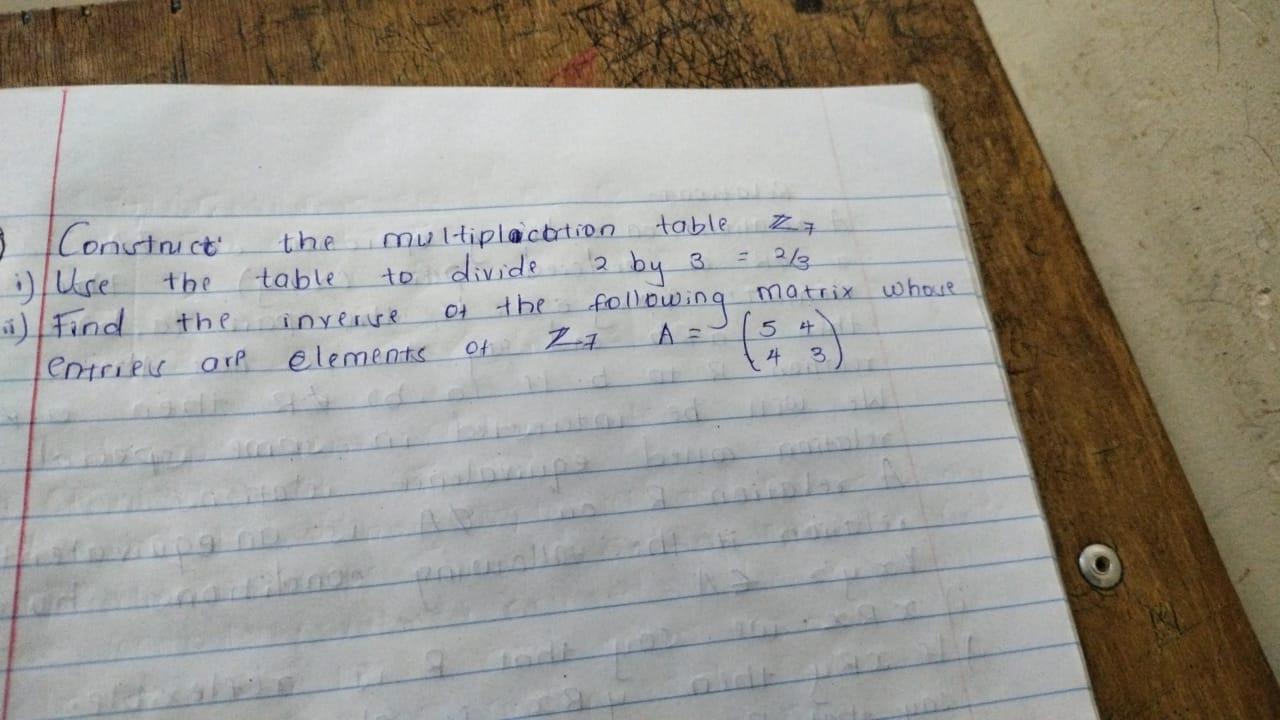 Construct the multiplication table ℤ7
i) Use the table to divide 2 by 3 = 2/3
ii) Find the inverse of the following matrix whose
entries are elements of ℤ7 A = (5 4
4 3)